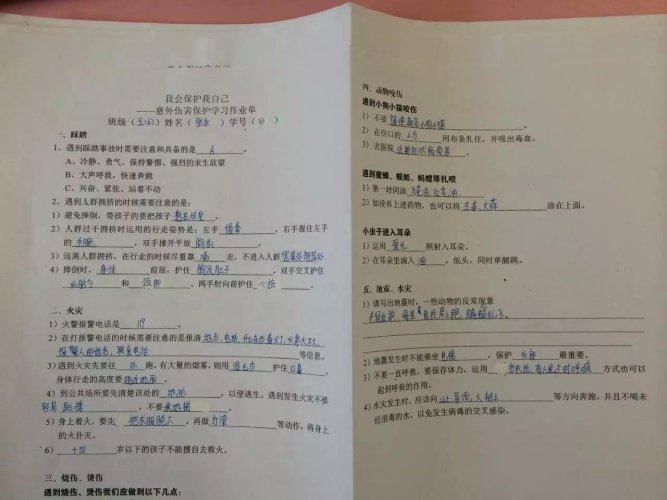 我会保护我自己
——意外伤害保护学习作业单
班级( )姓名( )学号( )
一、踩踏
1、遇到踩踏事故时需要注意和具备的是 A 。
A、冷静、勇气、保持警惕、强烈的求生欲望
B、大声呼救，快速奔跑
C、兴奋、紧张、站着不动
2、遇到人群拥挤的时候需要注意的是：
1）避免摔倒，带孩子的要把孩子 抱在怀里 。
2）人群过于拥挤时运用的行走姿势是：左手 握拳 ，右手握住左手
的 手腕 ，双手撑开平放 胸前 。
3）远离人群拥挤，在行走的时候尽量靠 墙 走，不进入人群
4）摔倒时， 身体 前屈，护住 ，双手交叉护住
和 颈部 ，两手肘向前护住 心脏 。
二、火灾
1）火警报警电话是 119 。
2）在打报警电话的时候需要注意的是报清 地点，电话，
报警人的姓名， 等信息。
3）遇到火灾先要往 外 跑，有大量的烟雾，则用 湿毛巾 护住 口鼻 ，
身体行走的高度要
4）到公共场所要先清楚该处的 地形 ，以便逃生。遇到发生火灾不要
轻易 跳楼 ，不要 乘电梯 。
5）身上着火，要先 把衣服脱下 ，再做 打滚 等动作，将身上
的火扑灭。
6） 十四 岁以下的孩子不能擅自去救火。
三、烧伤、烫伤
遇到烧伤、烫伤我们应做到以下几点：
四、动物咬伤
遇到小狗小猫咬伤
1）不要
2）在伤口的 上方 用布条扎住，并吸出毒血。
3）去医院 注射狂犬病疫苗 。
遇到蜜蜂、蜈蚣、蚂蝗等扎咬
1）第一时间涂
2）如没有上述药物，也可以将 生姜、大蒜 涂在上面。
小虫子进入耳朵
1）运用 照射入耳朵。
2）在耳朵里滴入 油 ，低头，同时单腿跳。
五、地震、水灾
1）请写出地震时，一些动物的反常现象
2）地震发生时不能乘坐 电梯 ，保护 头部 最重要。
3）不要一直呼救，要保存体力，运用 方式也可以
起到呼救的作用。
4）水灾发生时，应该向 等方向奔跑，并且不喝未
经消毒的水，以免发生病毒的交叉感染。